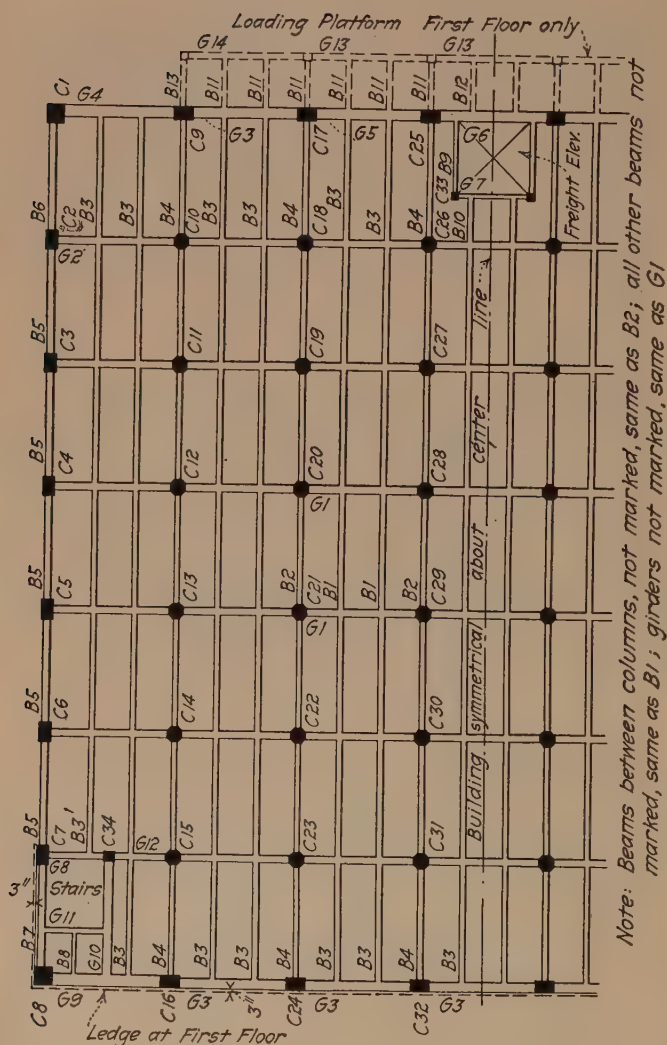 Loading Platform First Floor only
G14 G13 G13
B13 B11 B11 B11 B11 B11 B11 B12
C1 G4
C9 G3 C17 G5 C25 G6
G7
C33 B9
Freight Elev.
B6 C2 B3 B3 B4 C10 B3 B3 B4 C18 B3 B3 B4 C26 B10
G2
B5 C3 C11 C19 C27
line
B5 C4 C12 C20 C28
G1
center
B5 C5 C13 B2 C21 B1 B1 B2 C29
G1
about
B5 C6 C14 C22 C30
symmetrical
B5 C7 B3' C34 G12 C15 C23 C31
Building
G8
Stairs
3"
G11
B7 B8 G10 B3 B4 B3 B3 B4 B3 B3 B4 B3
C8 G9 C16 G3 3" C24 G3 C32 G3
Ledge at First Floor
Note: Beams between columns, not marked, same as B2; all other beams not
marked, same as B1; girders not marked, same as G1